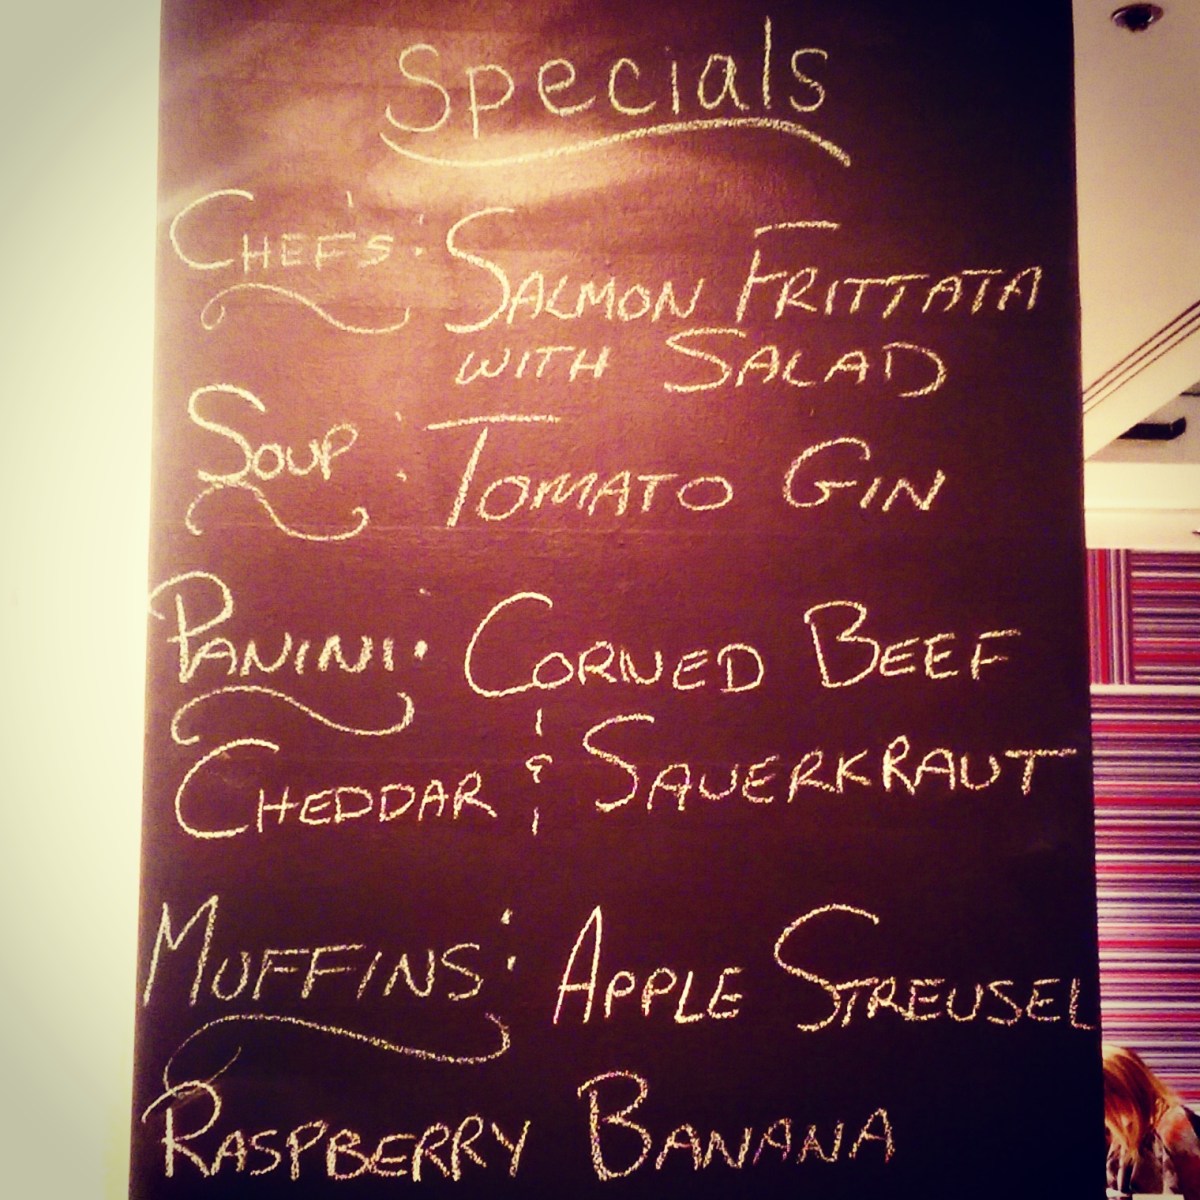 Specials
CHEF'S: SALMON FRITTATA
WITH SALAD
SOUP: TOMATO GIN
PANINI: CORNED BEEF
CHEDDAR & SAUERKRAUT
MUFFINS: APPLE STREUSEL
RASPBERRY BANANA